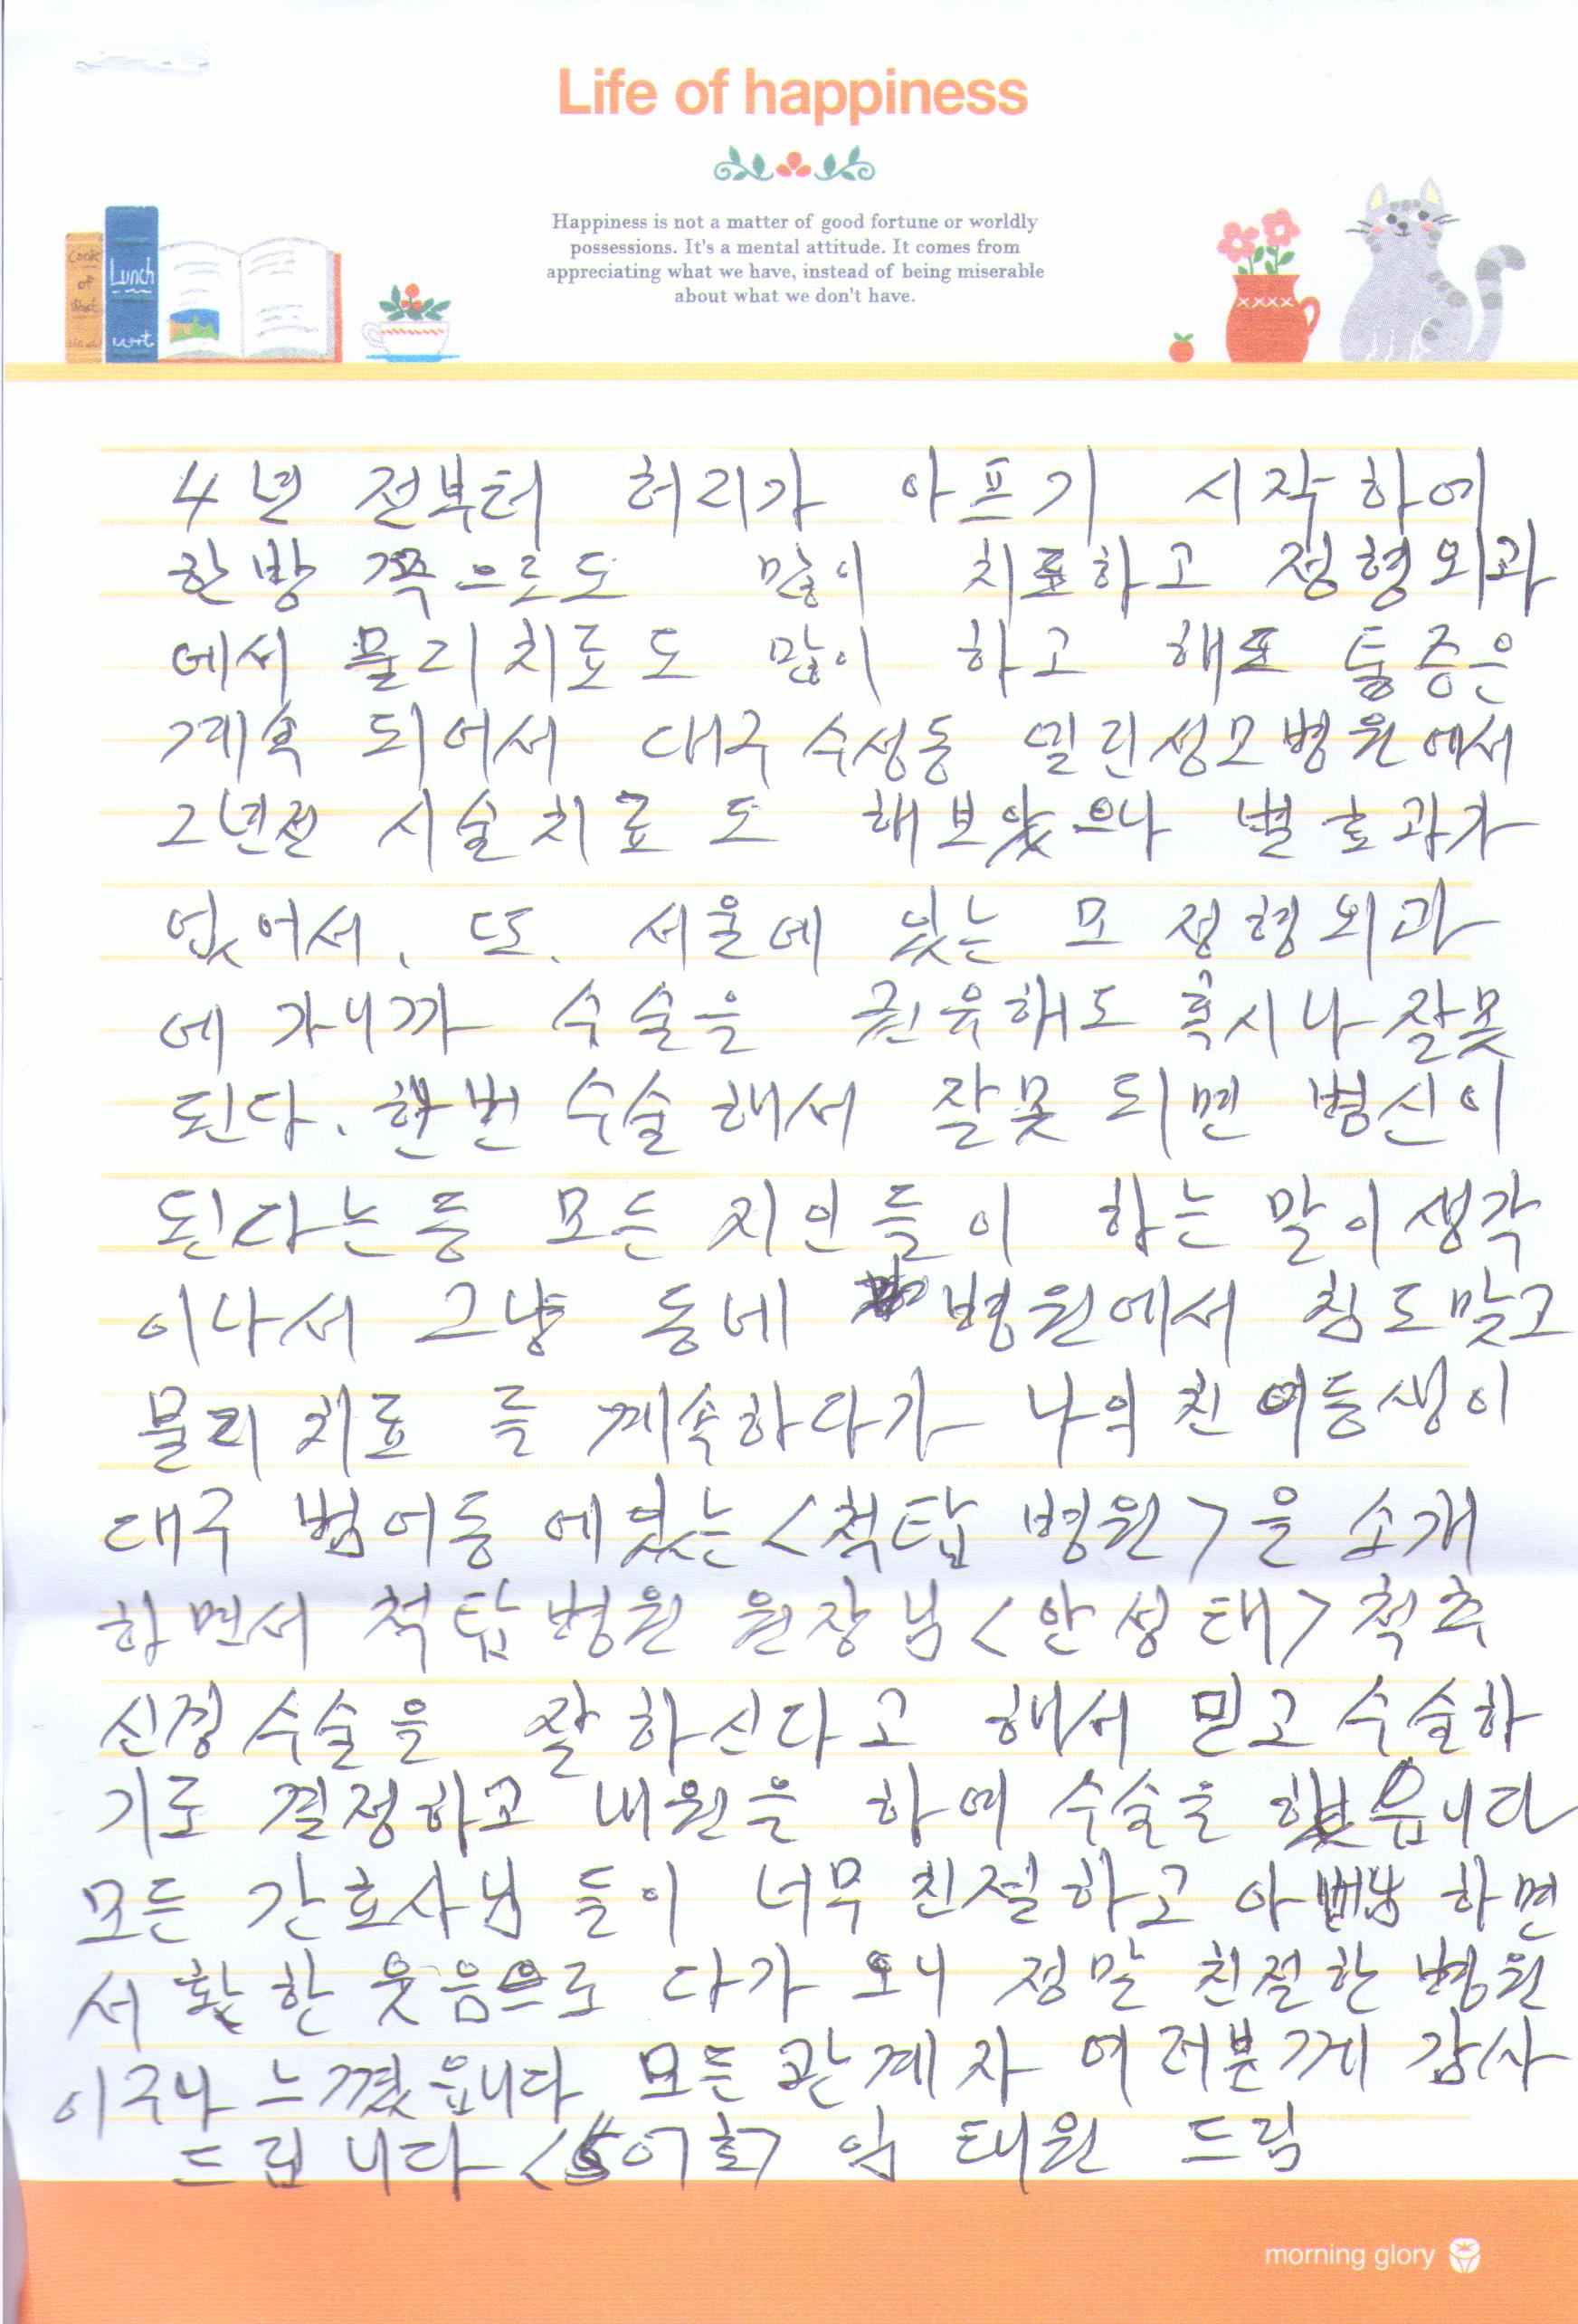 Life of happiness
Happiness is not a matter of good fortune or worldly
possessions. It's a mental attitude. It comes from
appreciating what we have, instead of being miserable
about what we don't have.
Cook
of
Lunch
4년 전부터 허리가 아프기 시작하여
한방 쪽으로도 많이 치료하고 정형외과
에서 물리치료도 많이 하고 해도 통증은
계속 되어서 대구 수성동 밀린성모병원에서
2년전 시술치료 도 해보았으나 별 효과가
없어서. 또. 서울에 있는 모 정형외과
에 가니까 수술을 권유해도 혹시나 잘못
된다. 한번 수술 해서 잘못 되면 병신이
된다는등 모든 지인들이 하는 말이 생각
이나서 그냥 동네 병원에서 침도맞고
물리치료 를 계속하다가 나의 친 여동생이
대구 범어동 에있는 <척탑 병원>을 소개
하면서 척탑병원 원장님 <안성태> 척추
신경수술을 잘하신다고 해서 믿고 수술하
기로 결정하고 내원을 하여 수술을 했읍니다
모든 간호사님 들이 너무 친절하고 아버님 하면
서 환한 웃음으로 다가 오니 정말 친절한 병원
이구나 느꼈읍니다 모든 관계자 여러분께 감사
드립니다 임 태원 드림
morning glory